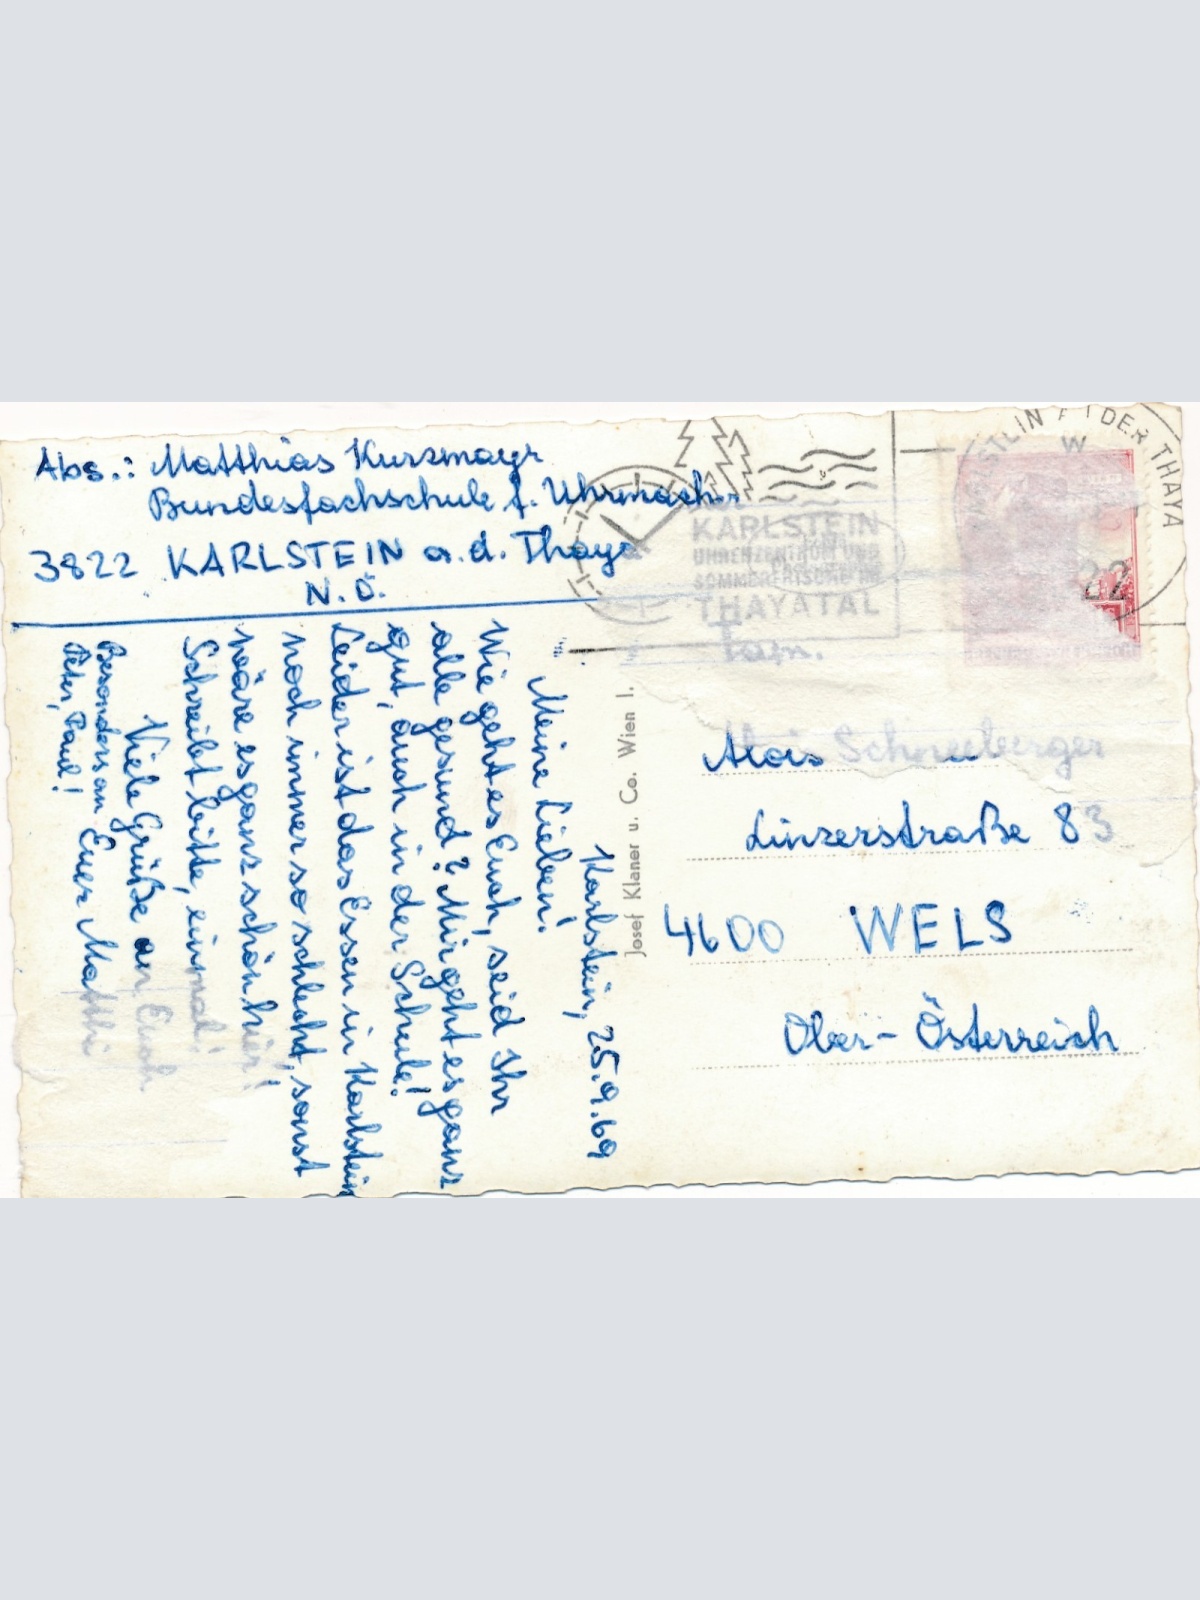 Abs.: Matthias Kurzmayr
Bundesfachschule f. Uhrmacher
3822 KARLSTEIN a.d. Thaya
N.Ö.
Karlstein, 25.9.69
Meine Lieben!
Wie geht es Euch, seid Ihr
alle gesund? Mir geht es ganz
gut, auch in der Schule!
Leider ist das Essen in Karlstein
noch immer so schlecht, sonst
wäre es ganz schön hier!
Schreibt bitte, einmal!
Viele Grüße an Euch
Besonders an Euer Matthi
Peter, Paul!
Josef Klaner u. Co. Wien I.
DER THAYA
22
KARLSTEIN
UHRENZENTRUM UND
SOMMERFRISCHE IM
THAYATAL
Fam.
Alois Schneeberger
Linzerstraße 83
4600 WELS
Ober-Österreich